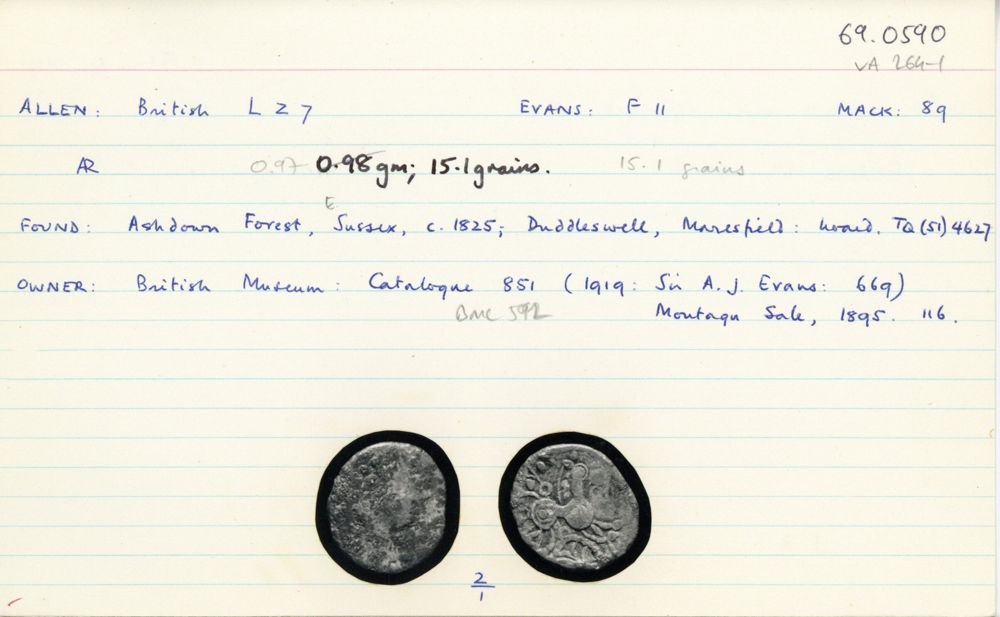 69.0590
VA 264-1
ALLEN: British L Z 7 EVANS: F 11 MACK: 89
AR 0.97 0.98 gm; 15.1 grains. 15.1 grains
E
FOUND: Ashdown Forest, Sussex, c. 1825; Duddleswell, Maresfield: hoard. TQ (51) 4627
OWNER: British Museum: Catalogue 851 (1919: Sir A.J. Evans: 669)
BMC 592 Montagu Sale, 1895. 116.
2
1